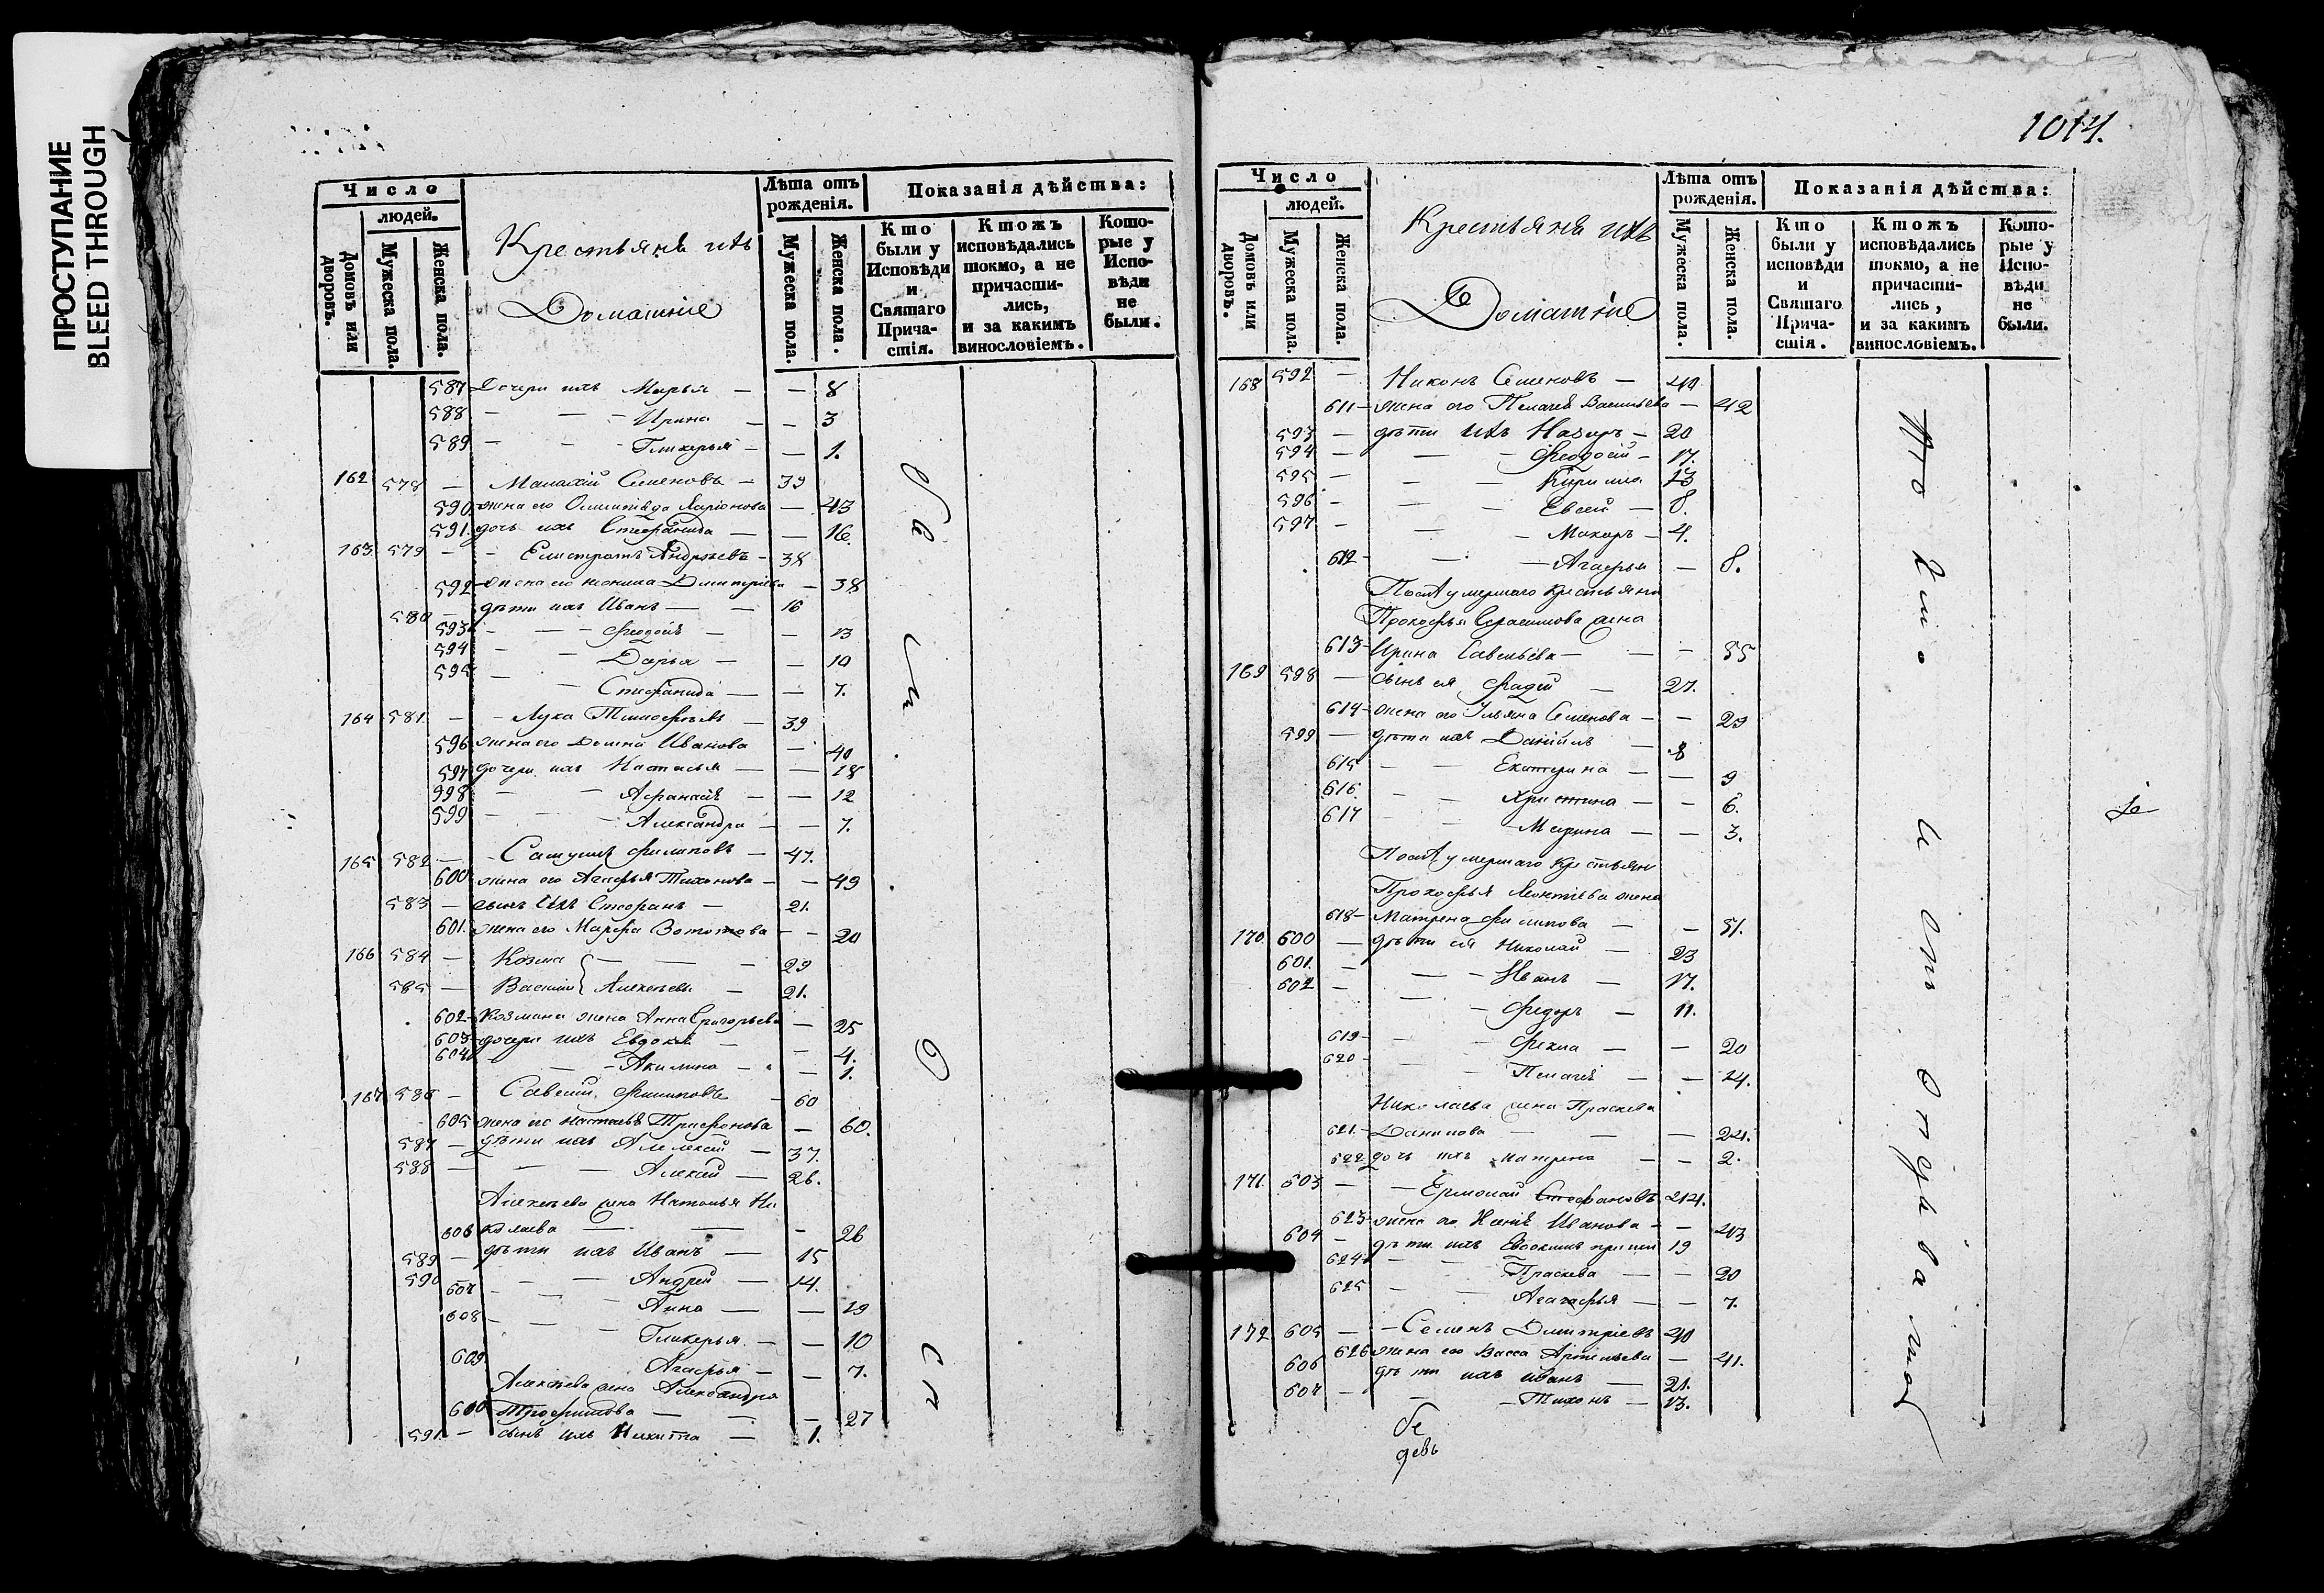 ПРОСТУПАНИЕ
BLEED THROUGH
Число
людей.
Домовъ или дворовъ.
Мужеска пола.
Женска пола.
Крестьяне ихъ
Домашніе
Лѣта отъ рожденія.
Мужеска пола.
Женска пола.
Показанія дѣйства:
Кто были у Исповѣди и Святаго Прича-стія.
Ктожъ исповѣдались токмо, а не причасти-лись, и за какимъ винословіемъ.
Кото-рые у Испо-вѣди не были.
587 Дочери ихъ Марья — — 8
588 — — Ирина — — 3
589 — — Гликерья — — 1.
162 578 — Малахій Семеновъ — 39
590 жена его Ларіонова — 43
591. дочь ихъ Стефанида — — 16.
163 579 — Елистратъ Андреевъ — 38
592 жена его Дмитріева — 38
580 — дѣти ихъ Иванъ — — 16
593 — — — 13
594 — — Дарья — — 10
595 — — Стефанида — — 7.
164 581. — Лука Тимофѣевъ — 39
596 жена его Домна Иванова — 40
597 дочери ихъ Настасья — — 18
998 — — — — 12
599 — — Александра — — 7.
165 582 — Филиповъ — 47.
600 жена его Агафья Тихонова — — 49
583 — сынъ ихъ Стефанъ — 21.
601. жена его Марфа — — 20
166 584 — Козма — — — 29
585 — Василій Алексѣевы — 21.
602 Козмина жена Анна Григорьева — 25
603 дочери ихъ Евдокія — — 4.
604 — — Акилина — — 1.
167 586 — Савелій Филиповъ — 60
605 жена его Настасья Трифонова — 60.
587 — дѣти ихъ Алексѣй — 37.
588 — — — Алексѣй — 26.
Алексѣева жена Наталья Ни
606 колаева — — — 26
589 — дѣти ихъ Иванъ — 15
590 — — Андрей — 14.
607 — — Анна — — 19
608 — — Гликерья — — 10
609 Агафья — — 7.
Алексѣева жена Александра
600 Трофимова — — — 27
591. — сынъ ихъ Никита — 1.
1014.
Число
людей.
Домовъ или дворовъ.
Мужеска пола.
Женска пола.
Крестьяне ихъ
Домашніе
Лѣта отъ рожденія.
Мужеска пола.
Женска пола.
Показанія дѣйства:
Кто были у исповѣди и Святаго Прича-стія.
Ктожъ исповѣдались токмо, а не причасти-лись, и за какимъ винословіемъ.
Кото-рые у Испо-вѣди не были.
168 592 — Никонъ Семеновъ — 49
611 — жена его Пелагея Васильева — 42
593 — дѣти ихъ Назаръ — 20
594 — — — Феодосій — 17.
595 — — — Кирила 13
596 — — — Евсей — 8.
597 — — — Макаръ — 4.
612 — — Агафья — 8.
Послѣ умершаго крестьянина
Прокофья Герасимова жена
613 — Ирина Савельева — — — 55
169 598 — сынъ ея Фадей — 27.
614 — жена его Ульяна Семенова — — 29
599 — дѣти ихъ Даніилъ — 8
615 — — Екатерина — — 9
616. — — Христина — — 6.
617 — — Марина — — 3.
Послѣ умершаго крестьянина
Прокофья Леонтьева жена
618 — Матрена Филипова — — 51.
170. 600 — дѣти ея Николай — 23
601. — — — Иванъ — 17.
602 — — — Федоръ — 11.
619 — — — Фекла — — 20
620 — — Пелагея — — 14.
Николаева жена Праскева
621. — Данилова — — — 24.
622 дочь ихъ Матрена — — 2.
171. 603 — — Ермолай Стефановъ 44.
623 — жена его Ксенія Иванова — — 43
604 — дѣти ихъ Евдокимъ 19
624 — Праскева — — 20
625 — — Агафья — — 7.
172 605 — — Семенъ Дмитріевъ 40
626 жена его Васса — 41.
606 дѣти ихъ Иванъ — 21.
607 — — — Тихонъ — 13.